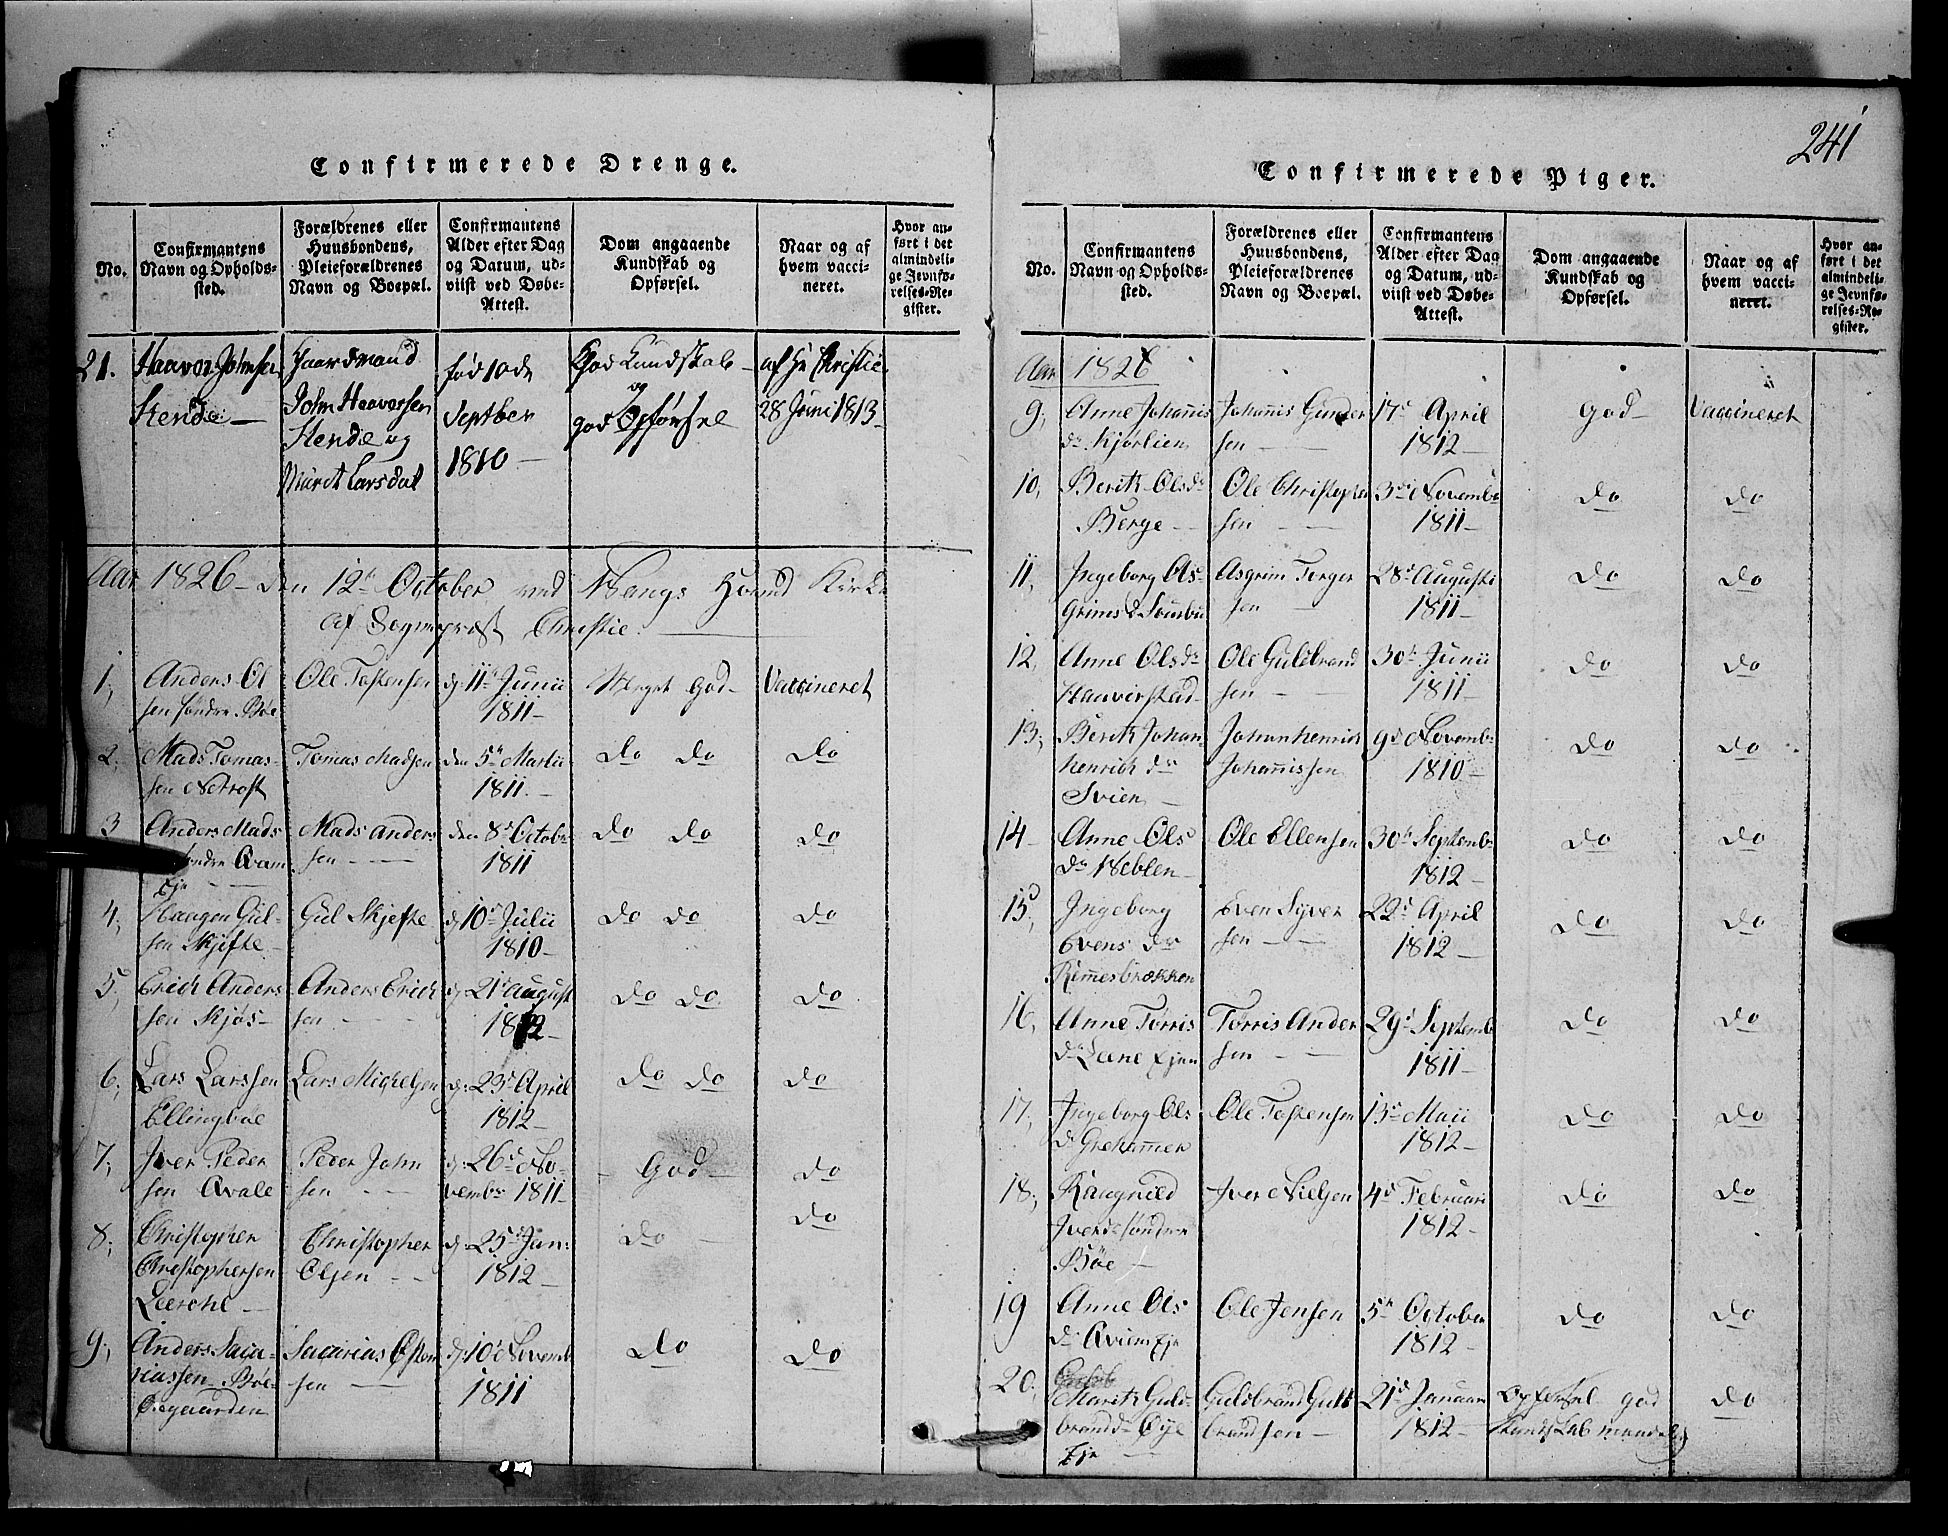 Confirmerede Drenge.
No.
Confirmantens Navn og Opholds-sted.
Forældrenes eller Huusbondens, Pleieforældrenes Navn og Boepæl.
Confirmantens Alder efter Dag og Datum, ud-viist ved Døbe-Attest.
Dom angaaende Kundskab og Opførsel.
Naar og af hvem vacci-neret.
Hvor an-ført i det almindeli-ge Jevnfø-relses-Re-gister.
21. Haavor Johnsen Stende —
Gaardmand John Haavorsen Stende og Marit Larsdat
fød 10de Septber 1810 —
God Kundskab og god Opførsel
af Hr Christie 28 Juni 1813
Aar 1826 — den 12te October ved Vangs Hoved Kirke
af Sognepræst Christie.
1, Anders Ol sen søndre Bøe
Ole Tostensen
d: 11te Junii 1811 —
Meget God —
Vaccineret
2, Mads Tomas- sen
Tomas Madsen
den 5te Martii 1811. —
do do
do
3 Anders Mads søndre Qvam Eje
Mads Anders sen — —
den 8de Octobr 1811
do do
do
4, Haagen Gul- sen Skjefte —
Gul Skjefte
d: 10de Julii 1810 —
do do
do
5, Erich Anders sen Skjøs —
Anders Erich sen —
d: 21de August 1812 —
do do
do
6, Lars Larssen Ellingbøe
Lars Michelsen
d: 23de April 1812 —
do do
do
7, Iver Peder sen Qvale
Peder John sen —
d: 26de No- vembr 1811 —
God —
do
8, Christopher Christophersen Leerohl —
Christopher Olsen — —
d: 25de Jan: 1812 —
do —
do
9, Anders Saca- riassen Bøe-
Sacarias Østen sen —
d: 10de Novemb 1811
do
do
241
Confirmerede Piger.
No.
Confirmantens Navn og Opholds-sted.
Forældrenes eller Huusbondens, Pleieforældrenes Navn og Boepæl.
Confirmantens Alder efter Dag og Datum, ud-viist ved Døbe-Attest.
Dom angaaende Kundskab og Opførsel.
Naar og af hvem vacci-neret.
Hvor an-ført i det almindeli-ge Jevnfø-relses-Re-gister.
Aar 1826
9, Anne Johannis dr Kjørlien
Johannis Gunder sen —
17de April 1812 —
God —
Vaccineret
10, Berith Olsdr Berge —
Ole Christopher sen —
3die Novembr 1811 —
do
do
11, Ingeborg As- grims dr Sørebu
Asgrim Torger sen —
28de Augusti 1811 —
do
do
12, Anne Olsdr Haaverstad —
Ole Guldbrand sen —
30te Junii 1811 —
do
do
13, Berith Johan- henrich dr Svien —
Johanhenrich Johannissen
9de Novembr 1810 —
do
do
14 Anne Ols dr Neblen —
Ole Ellensen
30te Septembr 1812 —
do
do
15, Ingeborg Evens dr Remesbrækken
Even Syver sen —
22de April 1812 —
do
do
16, Anne Torris dr Leine Ejen
Torris Ander sen —
29de Septemb 1811 —
do
do
17, Ingeborg Ols dr Grehammer
Ole Tostensen
13de Maii 1812 —
do
do
18, Rangnild Iversdr søndre Bøe —
Iver Nielsen
4de Februari 1812 —
do
do
19 Anne Ols dr Qvam Eje
Ole Jensen
5te October 1812 —
do
do
20, Marith Guld- brand dr Øye Eje —
Guldbrand Guld brandsen —
21de Januari 1812 —
Opførsel god Kundskab maadelig
do